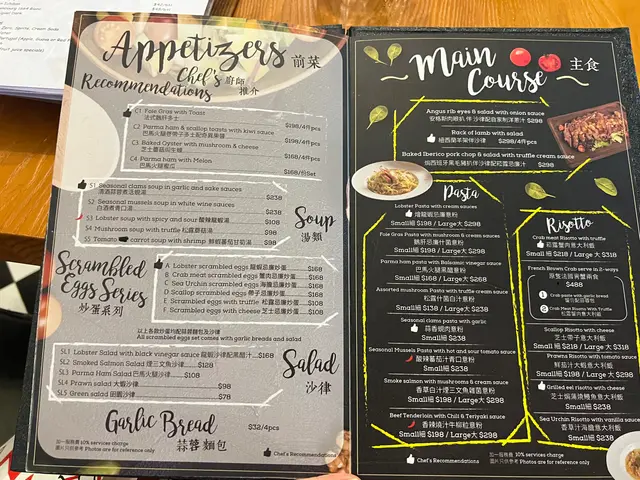 Appetizers 前菜
Chef's 廚師
Recommendations 推介
C1 Foie Gras with Toast
法式鵝肝多士
$198/4pcs
C2 Parma ham & scallop toasts with kiwi sauce
$198/4pcs
C3 Baked Oyster with mushroom & cheese
$168/4pcs
芝士蘑菇焗生蠔
C4 Parma ham with Melon
$168/份Set
S1 Seasonal clams soup in garlic and sake sauces
$238
S2 Seasonal mussels soup in white wine sauces
白酒煮青口湯
$238
S3 Lobster soup with spicy and sour 酸辣龍蝦湯
$108
S4 Mushroom soup with truffle 松露蘑菇湯
$98
S5 Tomato carrot soup with shrimp 鮮蝦蕃茄甘筍湯
$98
Soup
湯類
Scrambled
Eggs Series
炒蛋系列
A Lobster scrambled eggs 龍蝦滑炒蛋...$168
B Crab meat scrambled eggs 蟹肉滑炒蛋...$168
C Sea Urchin scrambled eggs 海膽滑炒蛋...$168
D Scallop scrambled eggs 帶子滑炒蛋...$168
E Scrambled eggs with truffle 松露滑炒蛋...$108
F Scrambled eggs with cheese 芝士滑炒蛋...$108
以上各款炒蛋均配蒜蓉麵包及沙律
All scrambled eggs set comes with garlic breads and salad
SL1 Lobster Salad with black vinegar sauce 龍蝦沙律配黑醋汁...$168
SL2 Smoked Salmon Salad 煙三文魚沙律...$128
SL3 Parma Ham Salad 巴馬火腿沙律...$108
SL4 Prawn salad 大蝦沙律
$98
SL5 Green salad 田園沙律
$78
Salad
沙律
Garlic Bread
$32/4pcs
蒜蓉麵包
加一服務費 10% services charge
圖片只供參考 Photos are for reference only
Chef's Recommendations
Main
Course
主食
Angus rib eyes & salad with onion sauce
安格斯肉眼扒伴沙律配自家制洋蔥汁 $298
Rack of lamb with salad
紐西蘭羊架伴沙律 $298
Baked Iberico pork chop & salad with truffle cream sauce
焗西班牙黑毛豬扒伴沙律配松露忌廉汁 $268
Pasta
Lobster Pasta with cream sauces
燴龍蝦忌廉意粉
Small細 $198 / Large大 $298
Foie Gras Pasta with mushroom & cream sauces
鵝肝忌廉什菌意粉
Small細 $198 / Large大 $298
Parma ham pasta with Balsamic vinegar sauce
巴馬火腿黑醋意粉
Small細 $168 / Large大 $268
Assorted mushroom Pasta with truffle cream sauce
松露什菌白汁意粉
Small細 $138 / Large大 $238
Seasonal clams pasta with garlic
蒜香蜆肉意粉
Small細 $238
Seasonal Mussels Pasta with hot and sour tomato sauce
酸辣蕃茄汁青口意粉
Small細 $238
Smoke salmon with mushrooms & cream sauce
香草白汁煙三文魚雜菌意粉
Small細 $198 / Large大 $298
Beef Tenderloin with Chili & Teriyaki sauce
香辣燒汁牛柳粒意粉
Small細 $198 / Large大 $298
Risotto
Crab meat Risotto with truffle
松露蟹肉意大利飯
Small細 $218 / Large大 $318
French Brown Crab serve in 2-ways
原隻法國黃蟹兩食
$488
1 Crab paste with garlic bread
2 Crab Meat Risotto With Truffle
松露蟹肉意大利飯
Scallop Risotto with cheese
芝士帶子意大利飯
Small細 $218 / Large大 $318
Prawns Risotto with tomato sauce
鮮茄汁大蝦意大利飯
Small細 $198 / Large大 $298
Grilled eel risotto with cheese
芝士焗蒲燒鰻魚意大利飯
Small細 $238
Sea Urchin Risotto with vanilla sauce
香草汁海膽意大利飯
Small細 $238
加一服務費 10% services charge
圖片只供參考 Photos are for reference only
Chef's Recommendations